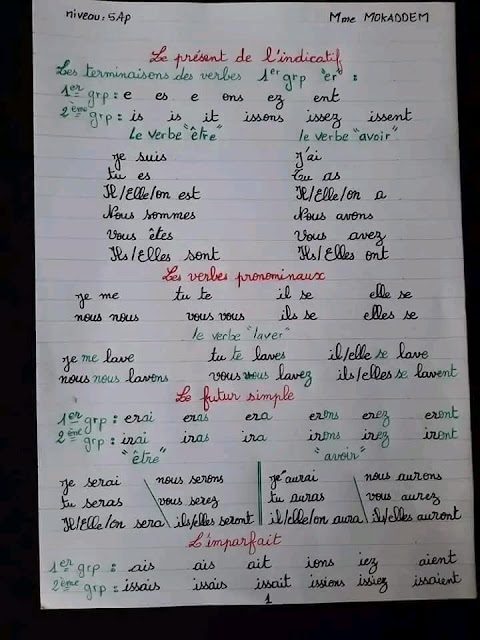 niveau: 5Ap Mme MOKADDEM
Le présent de l'indicatif
Les terminaisons des verbes 1er grp "er" :
1er grp : e es e ons ez ent
2ème grp : is is it issons issez issent
le verbe "être" le verbe "avoir"
je suis j'ai
tu es Tu as
Il/Elle/on est Il/Elle/on a
Nous sommes Nous avons
Vous êtes Vous avez
Ils/Elles sont Ils/Elles ont
Les verbes pronominaux
je me tu te il se elle se
nous nous vous vous ils se elles se
le verbe "laver"
je me lave tu te laves il/elle se lave
nous nous lavons vous vous lavez ils/elles se lavent
Le futur simple
1er grp : erai eras era erons erez eront
2ème grp : irai iras ira irons irez iront
"être" "avoir"
je serai nous serons j'aurai nous aurons
tu seras vous serez tu auras vous aurez
Il/Elle/on sera ils/elles seront il/elle/on aura ils/elles auront
L'imparfait
1er grp : ais ais ait ions iez aient
2ème grp : issais issais issait issions issiez issaient
1